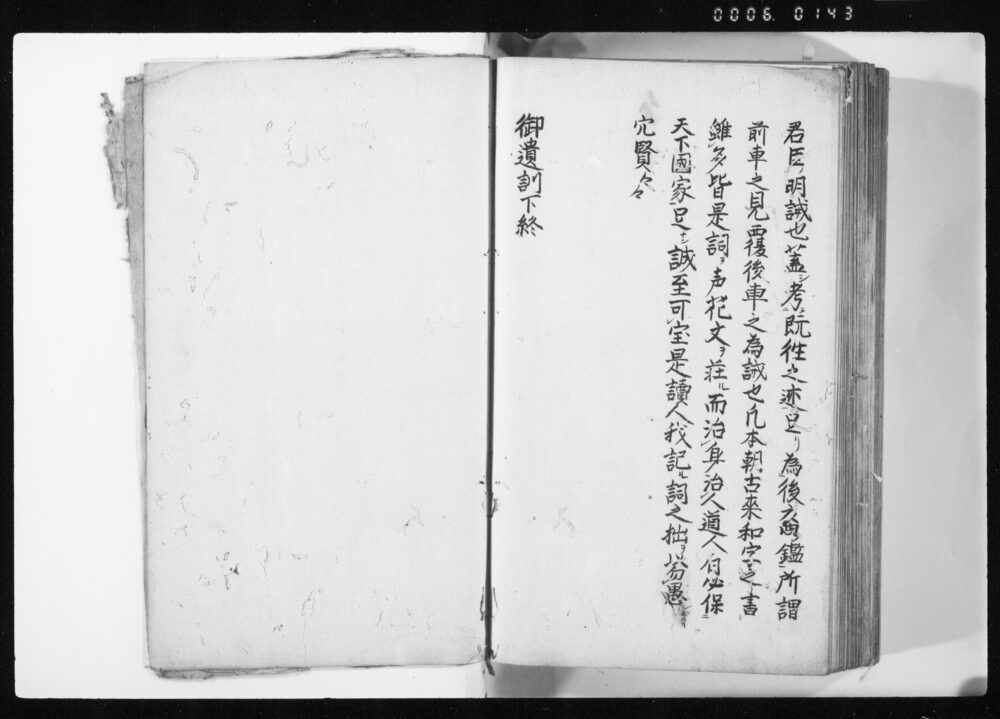 0006. 0143
君臣明誡也蓋シ考ニ既徃之迹足リ為後裔鑑所謂
前車之見覆後車之為誡也凡本朝古来和字之書
雖多皆是詞ヲ声花文ヲ荘ル而治身治人道人自必保ニ
天下國家足ン誠至可宝是讀人我記ル詞之拙ヲ
穴賢々々
御遺訓下終